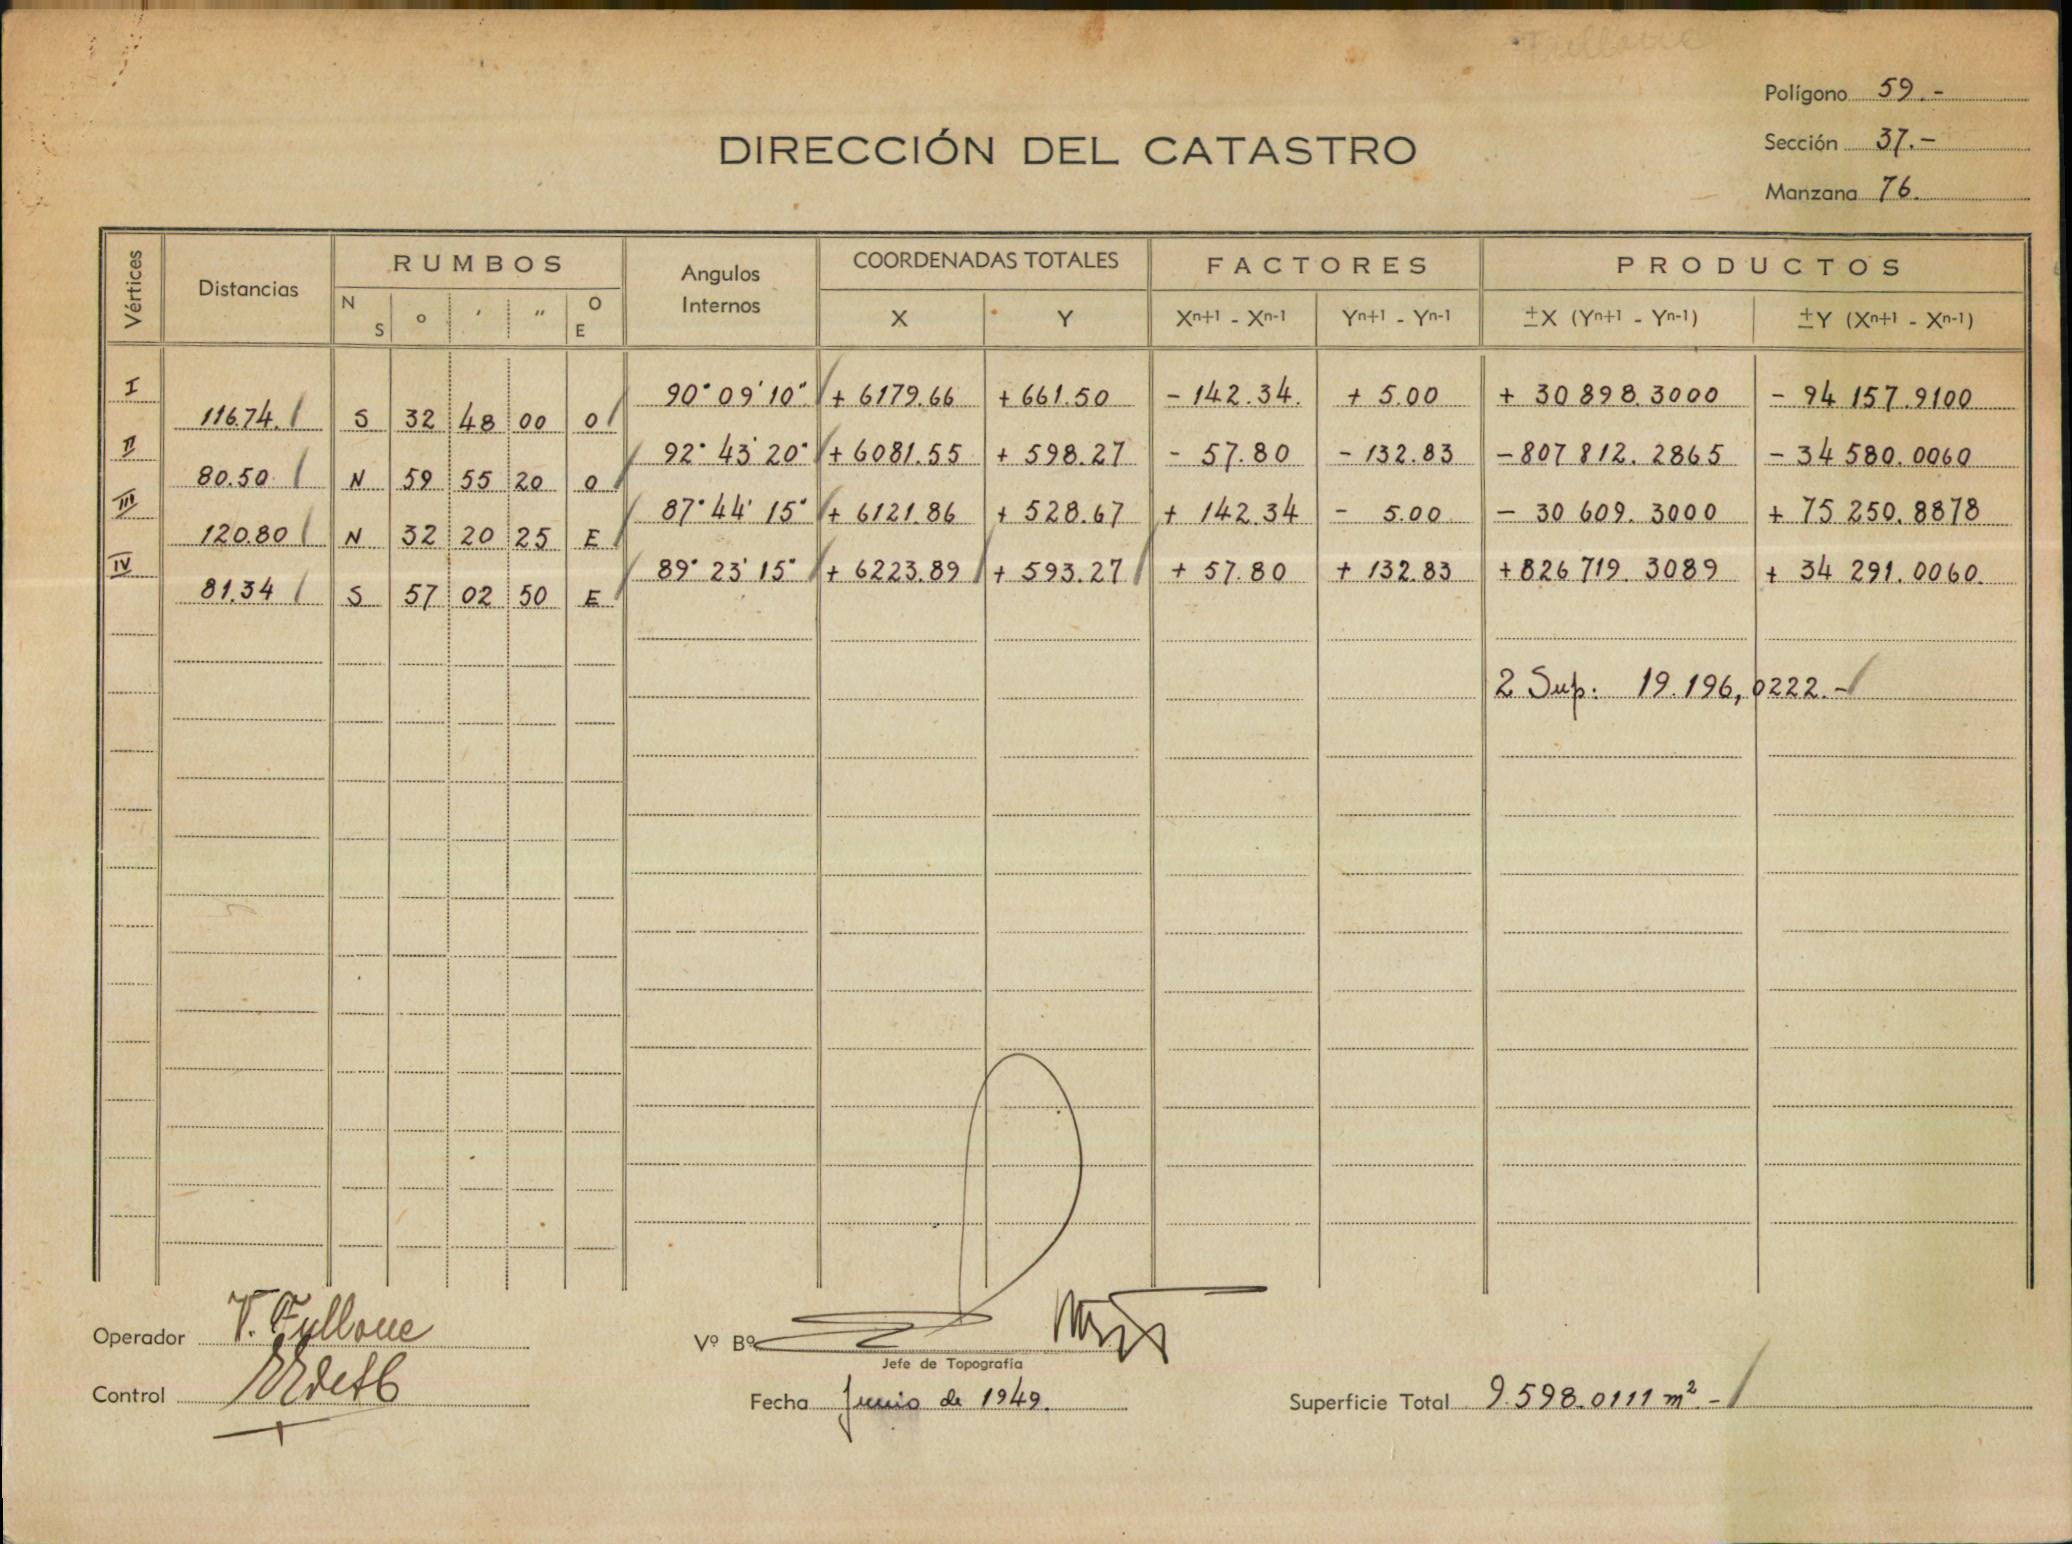 Polígono 59.-
DIRECCIÓN DEL CATASTRO
Sección 37.-
Manzana 76.
Vértices Distancias RUMBOS Angulos Internos COORDENADAS TOTALES FACTORES PRODUCTOS
N S ° ' " O E X Y Xn+1 - Xn-1 Yn+1 - Yn-1 ±X (Yn+1 - Yn-1) ±Y (Xn+1 - Xn-1)
I 90° 09' 10" + 6179.66 + 661.50 - 142.34. + 5.00 + 30 898.3000 - 94 157.9100
116.74. S 32 48 00 O
II 92° 43' 20" + 6081.55 + 598.27 - 57.80 - 132.83 - 807 812. 2865 - 34 580.0060
80.50 N 59 55 20 O
III 87° 44' 15" + 6121.86 + 528.67 + 142.34 - 5.00 - 30 609. 3000 + 75 250.8878
120.80 N 32 20 25 E
IV 89° 23' 15" + 6223.89 + 593.27 + 57.80 + 132.83 + 826 719. 3089 + 34 291.0060.
81.34 S 57 02 50 E
2 Sup: 19.196,0222.-
Operador V. Fullone
Vº Bº
Jefe de Topografía
Control
Fecha Junio de 1949.
Superficie Total 9.598.0111 m².-